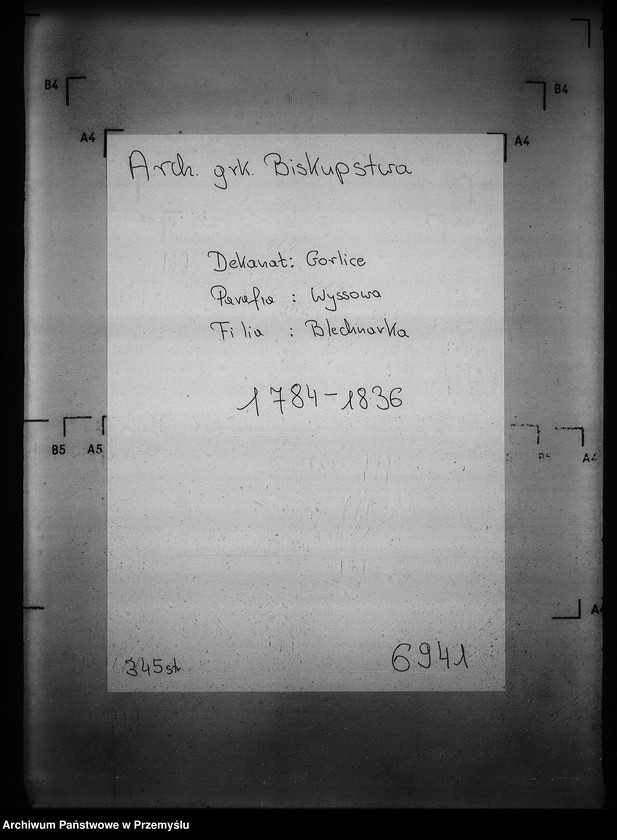 B4
B4
A4
A4
Arch. grk. Biskupstwa
Dekanat: Gorlice
Parafia : Wyssowa
Filia : Blechnarka
1784-1836
B5 A5
A4
345 str.
6941
Archiwum Państwowe w Przemyślu